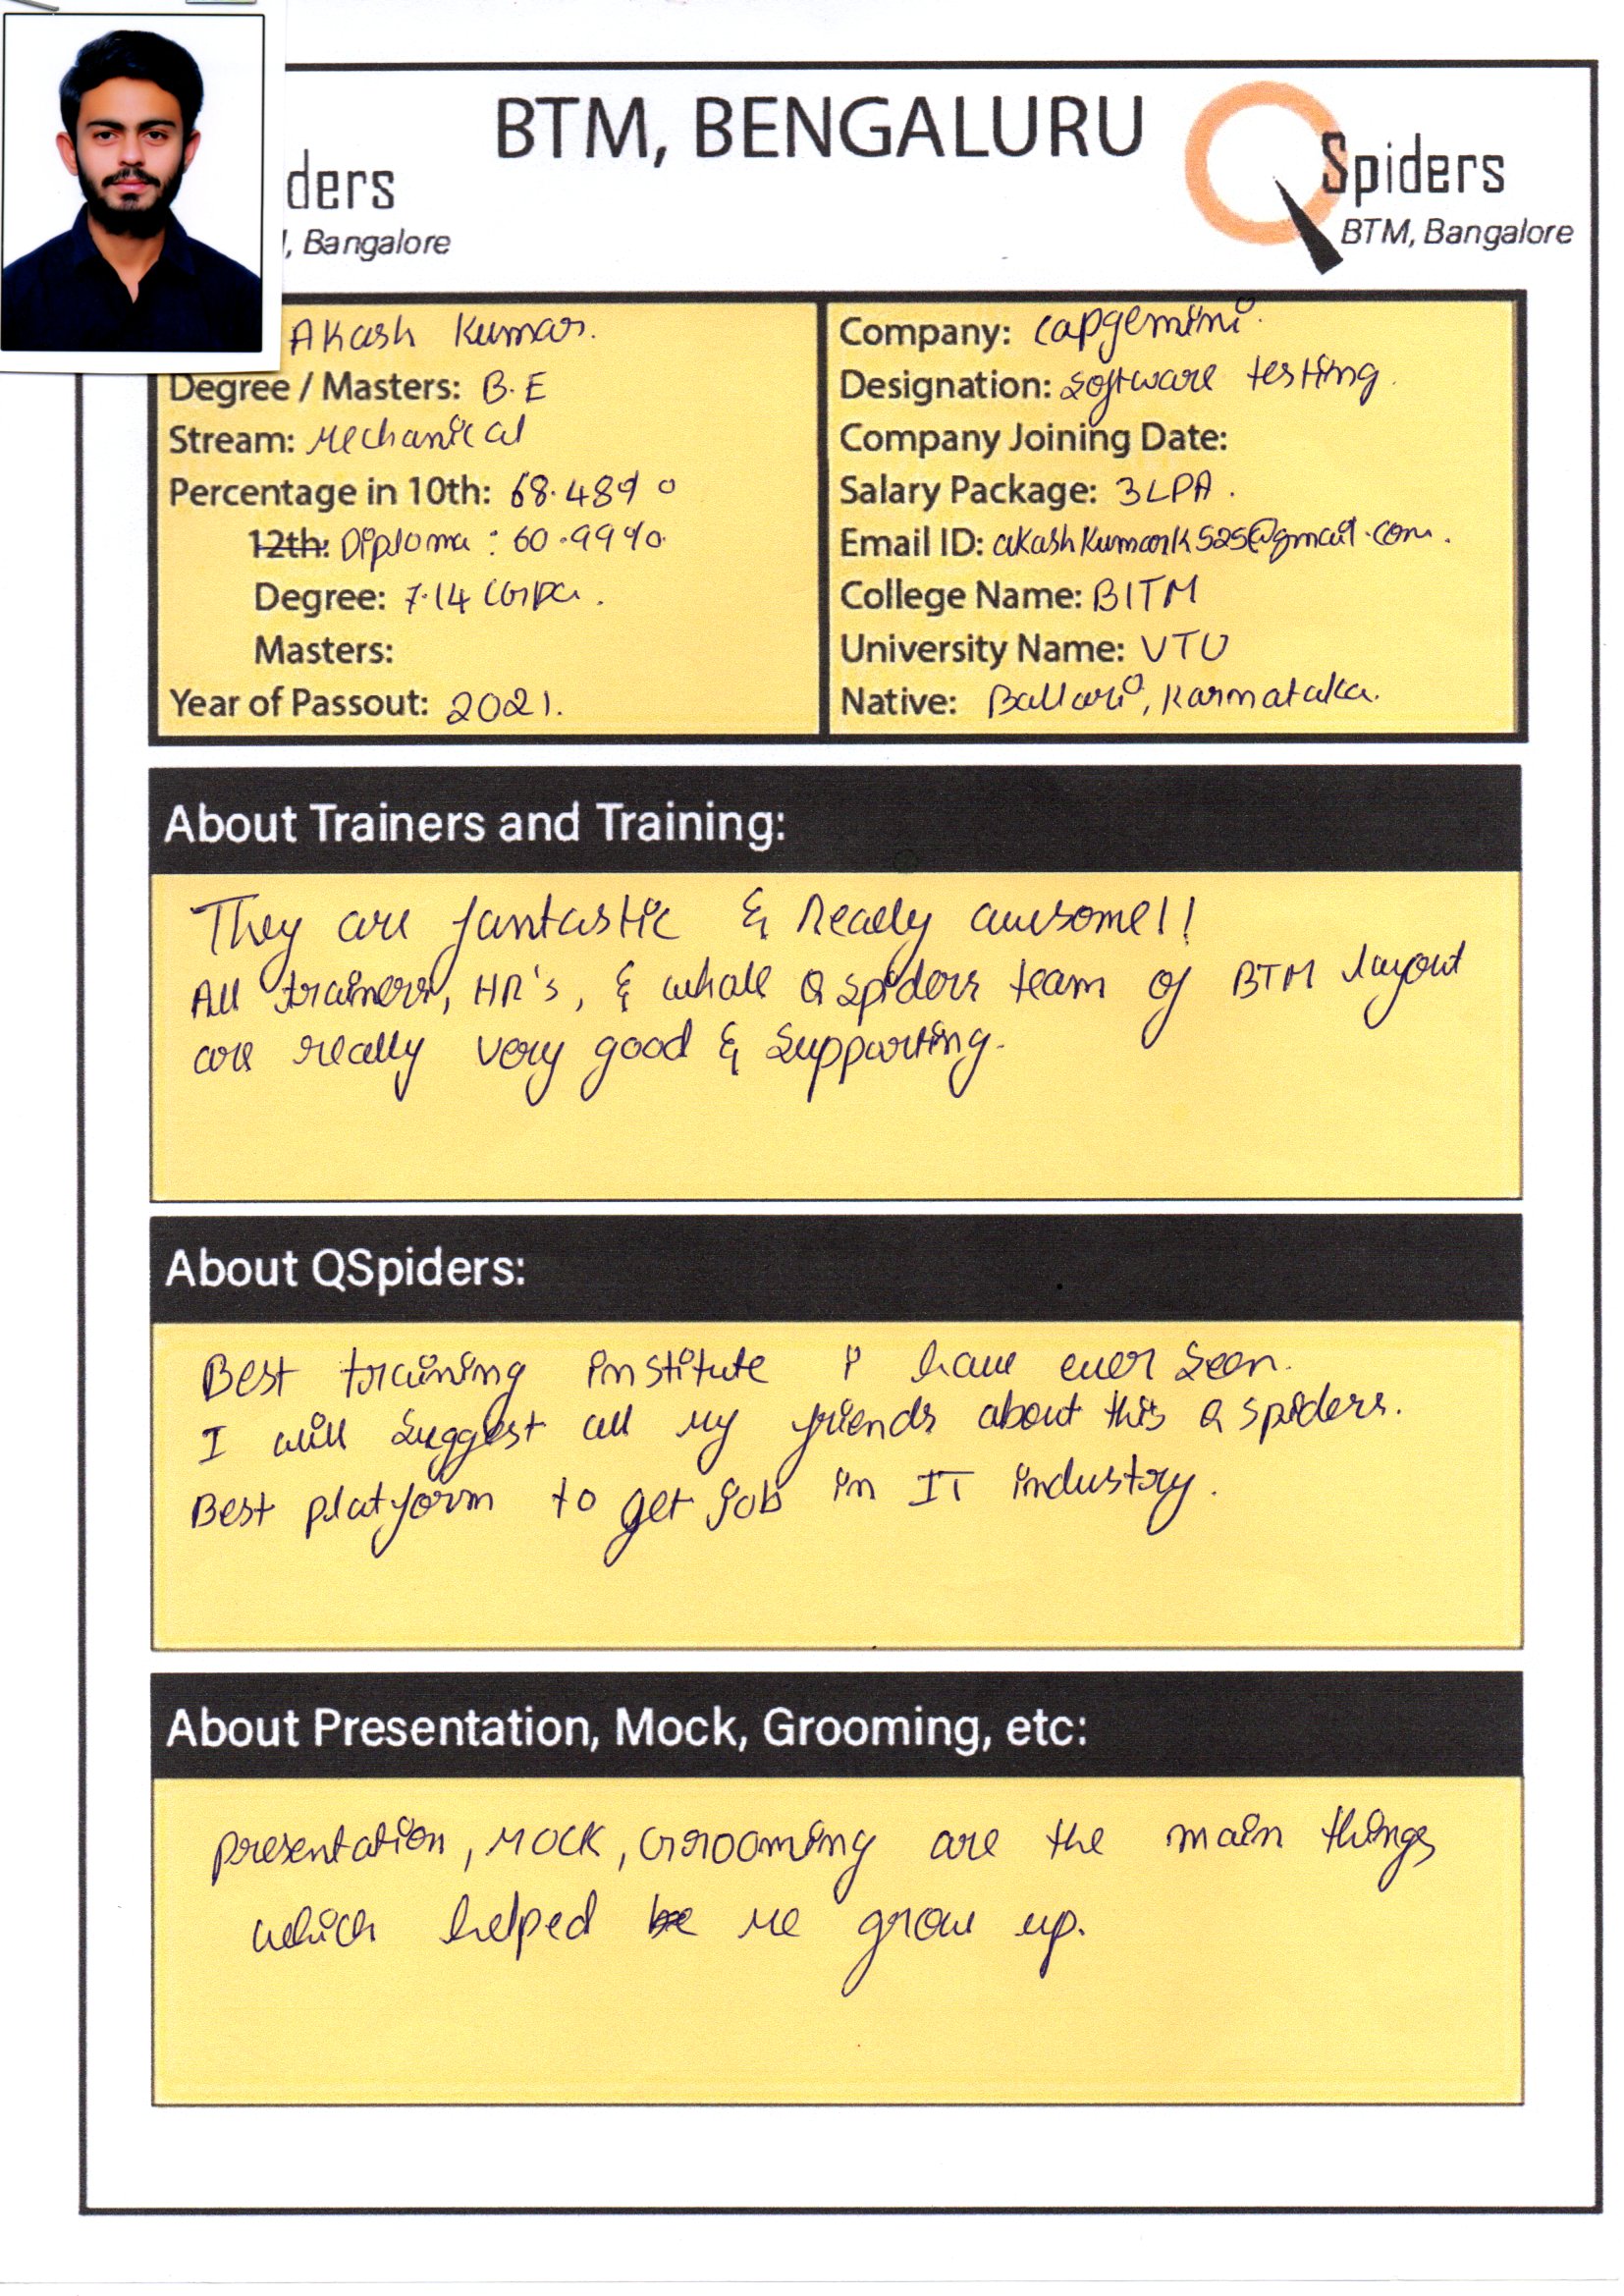 BTM, BENGALURU
ders
, Bangalore
Spiders
BTM, Bangalore
Akash Kumar.
Degree / Masters: B.E
Stream: Mechanical
Percentage in 10th: 68.48%
12th: Diploma : 60.99%.
Degree: 7.14 CGPA.
Masters:
Year of Passout: 2021.
Company: Capgemini.
Designation: Software testing.
Company Joining Date:
Salary Package: 3LPA.
Email ID: akashkumark525@gmail.com.
College Name: BITM
University Name: VTU
Native: Ballari, Karnataka.
About Trainers and Training:
They are fantastic & Really awesome!!
All trainers, HR's, & whole Q spiders team of BTM layout
are really very good & Supporting.
About QSpiders:
Best training institute i have ever seen.
I will suggest all my friends about this Q spiders.
Best platform to get job in IT industry.
About Presentation, Mock, Grooming, etc:
presentation, Mock, Grooming are the main things
which helped me grow up.